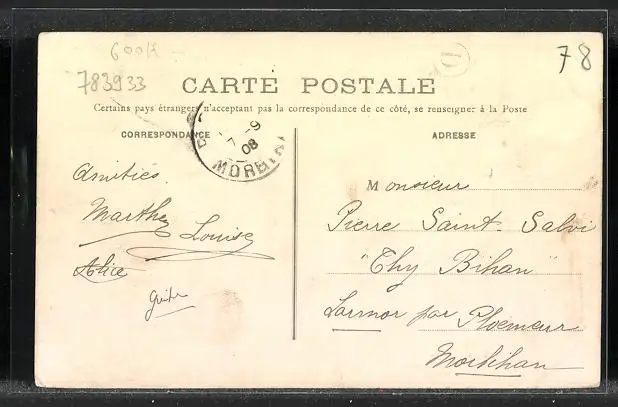 600k -
783933
78
CARTE POSTALE
Certains pays étrangers n'acceptant pas la correspondance de ce côté, se renseigner à la Poste
CORRESPONDANCE
ADRESSE
7 - 9
08
MORBIHAN
Amitiés.
Marthe
Louise
Alice
Monsieur
Pierre Saint-Salvi
"Thy Bihan"
Larmor par Ploemeur
Morbihan